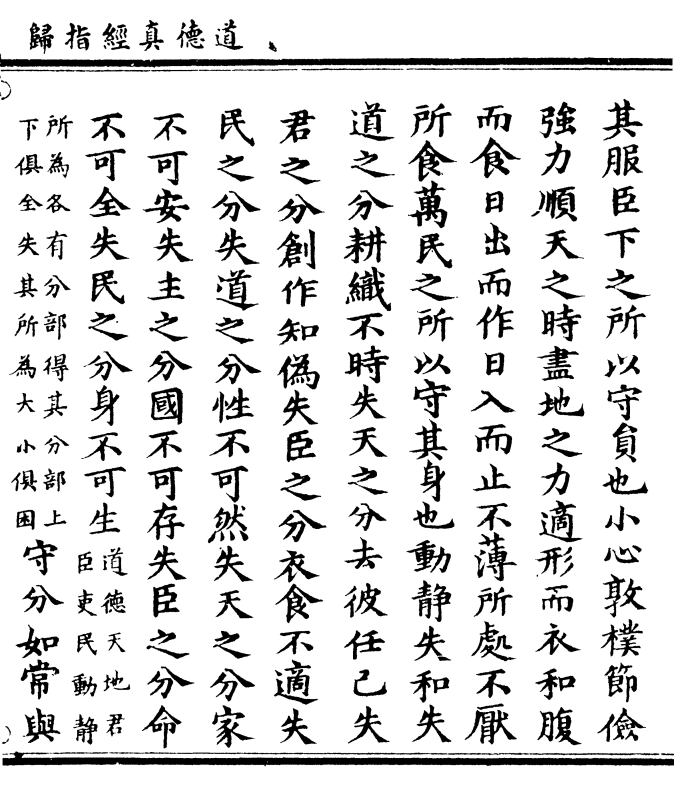 道德真經指歸
其服臣下之所以守貟也小心敦樸節儉
強力順天之時盡地之力適形而衣和腹
而食日出而作日入而止不薄所處不厭
所食萬民之所以守其身也動靜失和失
道之分耕織不時失天之分去彼任己失
君之分創作知偽失臣之分衣食不適失
民之分失道之分性不可然失天之分家
不可安失主之分國不可存失臣之分命
不可全失民之分身不可生道德天地君臣吏民動靜
所為各有分部得其分部上下俱全失其所為大小俱困守分如常與